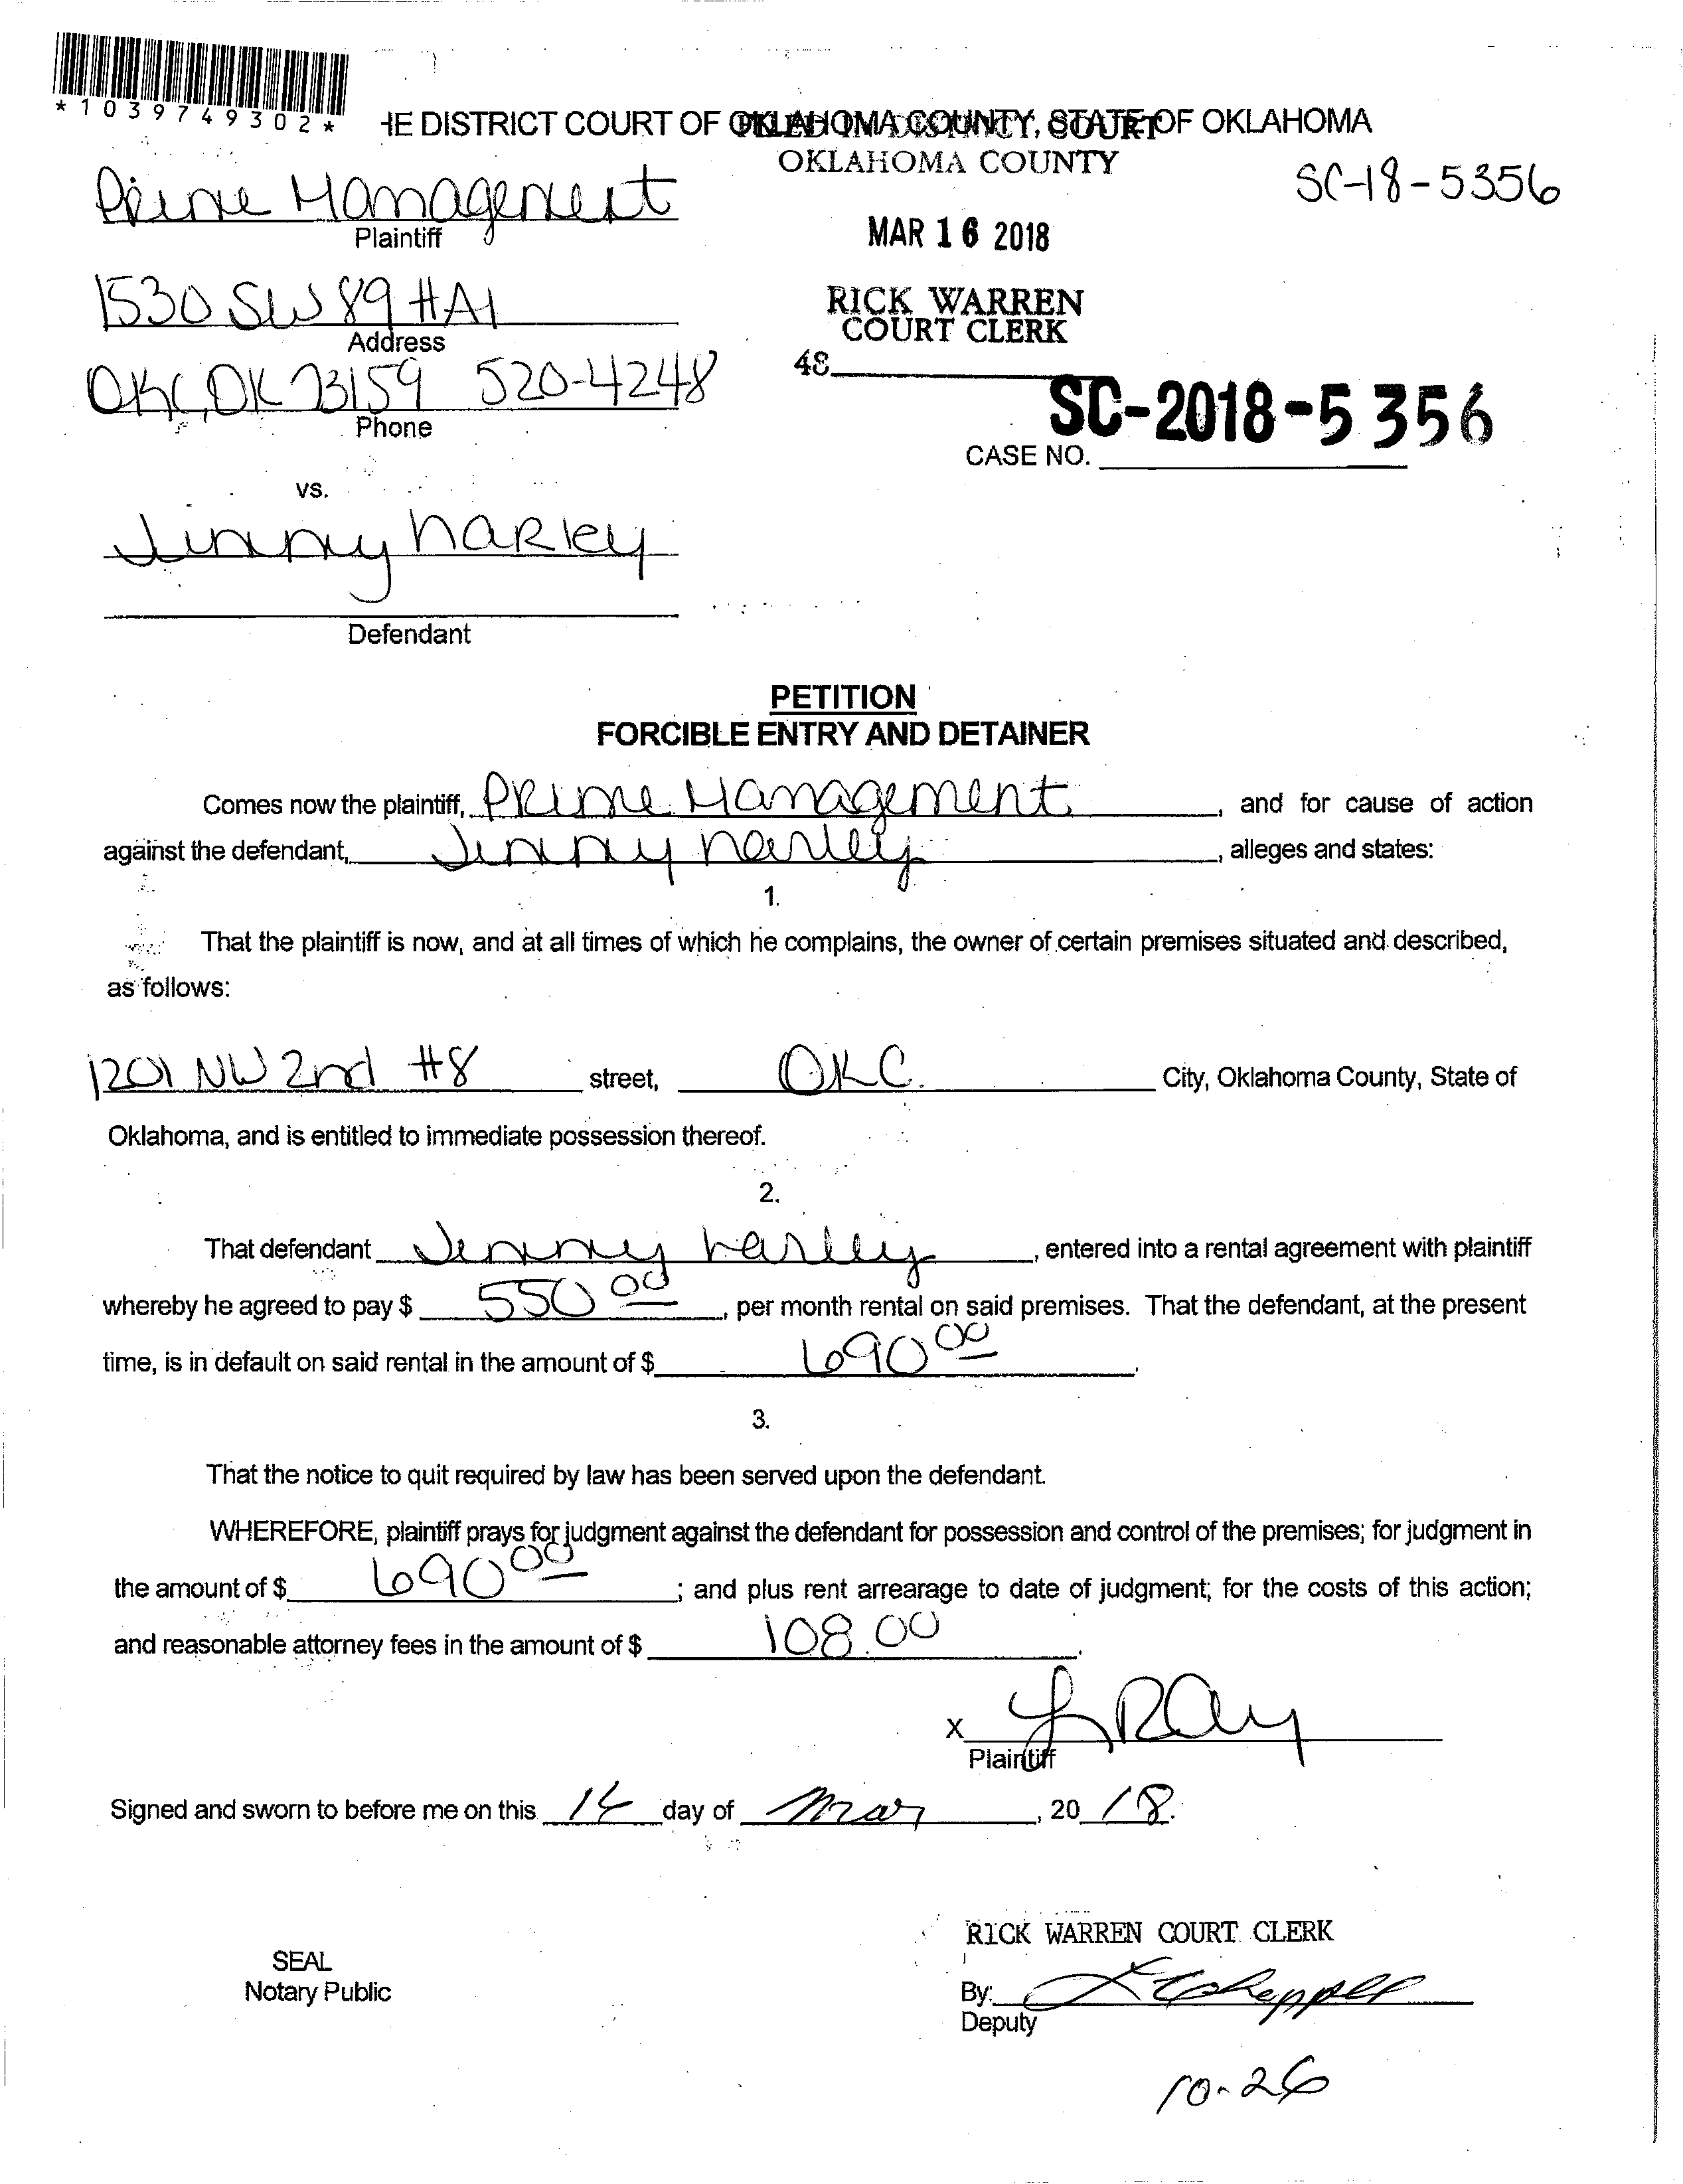 *1039749302*
HE DISTRICT COURT OF OKLAHOMA COUNTY, STATE OF OKLAHOMA
FILED IN DISTRICT COURT
OKLAHOMA COUNTY
SC-18-5356
Prime Management
Plaintiff
MAR 16 2018
1530 SW 89 #A1
Address
RICK WARREN
COURT CLERK
OKC, OK 73159 520-4248
Phone
48
SC-2018-5356
CASE NO.
vs.
Jinny harley
Defendant
PETITION
FORCIBLE ENTRY AND DETAINER
Comes now the plaintiff, Prime Management, and for cause of action
against the defendant, Jinny harley, alleges and states:
1.
That the plaintiff is now, and at all times of which he complains, the owner of certain premises situated and described,
as follows:
1201 NW 2nd #8 street, OKC. City, Oklahoma County, State of
Oklahoma, and is entitled to immediate possession thereof.
2.
That defendant Jenny harley, entered into a rental agreement with plaintiff
whereby he agreed to pay $ 550 00, per month rental on said premises. That the defendant, at the present
time, is in default on said rental in the amount of $ 690 00.
3.
That the notice to quit required by law has been served upon the defendant.
WHEREFORE, plaintiff prays for judgment against the defendant for possession and control of the premises; for judgment in
the amount of $ 690 00; and plus rent arrearage to date of judgment; for the costs of this action;
and reasonable attorney fees in the amount of $ 108.00.
X L Ray
Plaintiff
Signed and sworn to before me on this 16 day of Mar, 20 18.
RICK WARREN COURT CLERK
SEAL
Notary Public
By:
Deputy
10-26